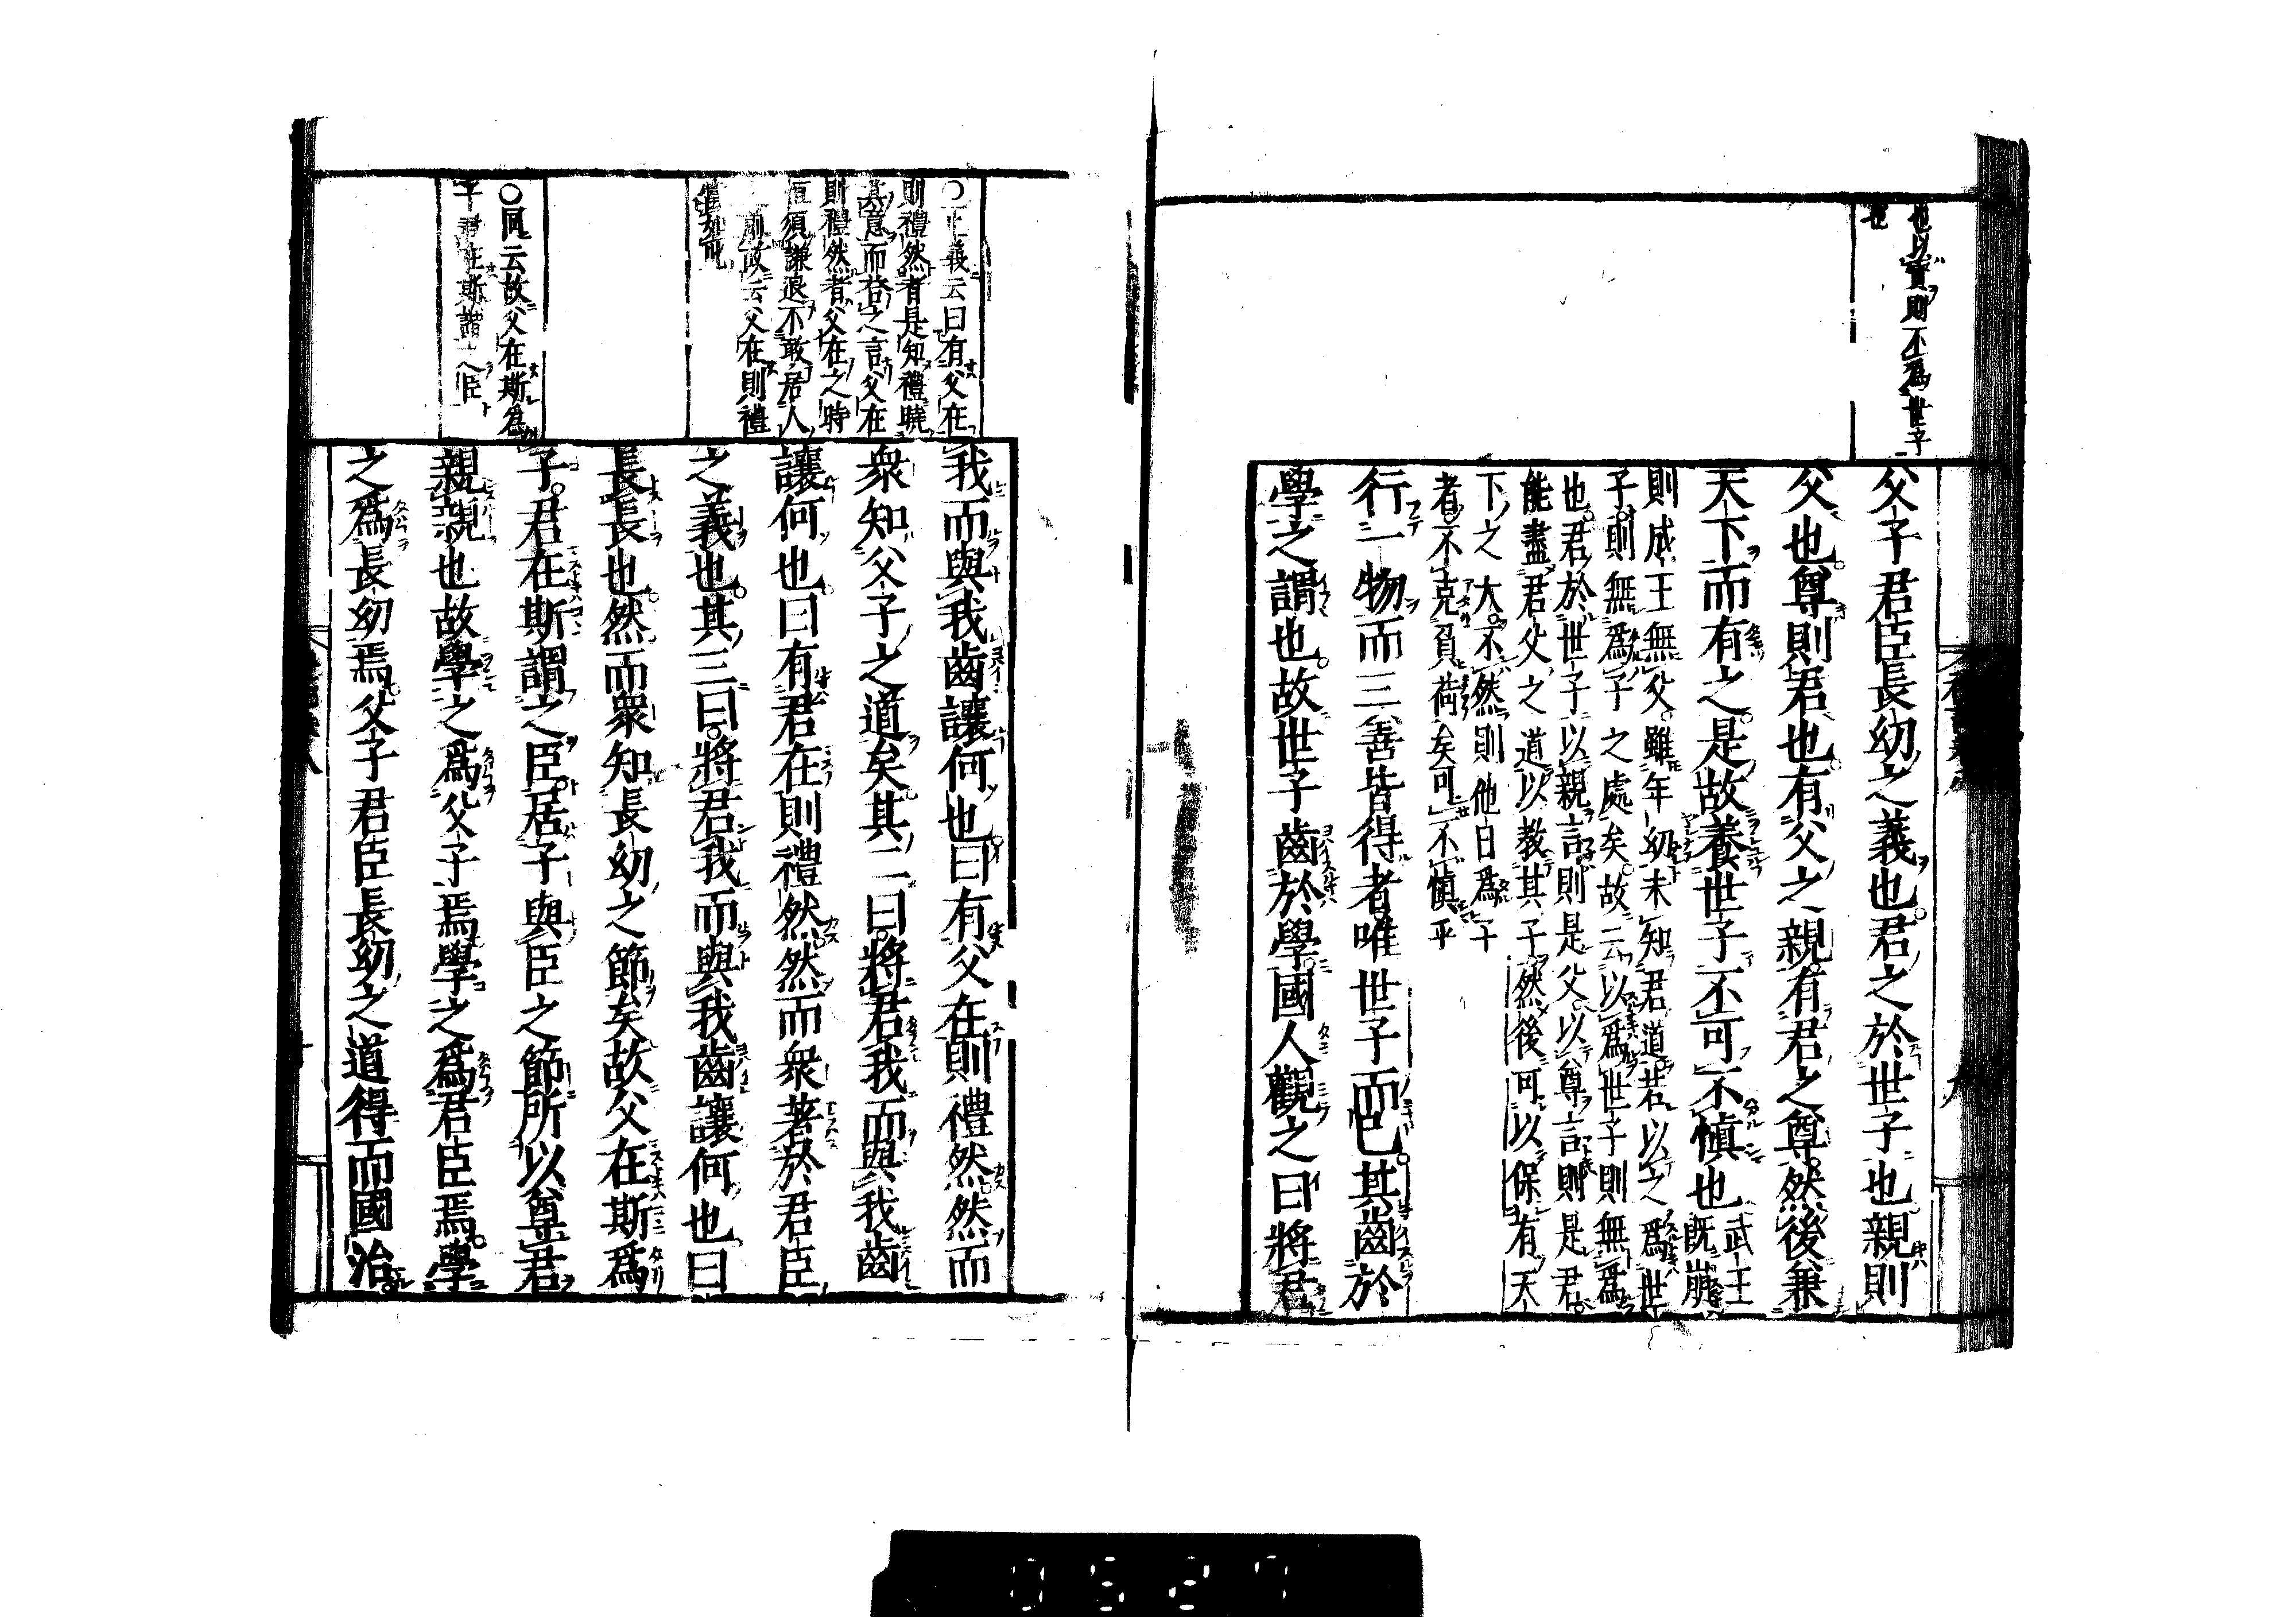 也以實則不爲世子
也
父子君臣長幼之義也君之於世子也親則
父也尊則君也有父之親有君之尊然後兼
天下而有之是故養世子不可不慎也武王既崩
則成王無父雖年幼未知君道若以之爲世
子則無爲子之處矣故云以爲世子則無爲
也君於世子以親言則是父以尊言則是君
能盡君父之道以教其子然後可以保有天
下之大不然則他日爲子
者不克負荷矣可不慎乎
行一物而三善皆得者唯世子而已其齒於
學之謂也故世子齒於學國人觀之曰將君
九
○正義云曰有父在
則禮然者是知禮曉
其意而荅之言父在
則禮然者父在之時
恒須謙退不敢居人
前故云父在則禮
當如此
○同云故父在斯爲
子君在斯謂之臣
我而與我齒讓何也曰有父在則禮然然而
衆知父子之道矣其二曰將君我而與我齒
讓何也曰有君在則禮然然而衆著於君臣
之義也其三曰將君我而與我齒讓何也曰
長長也然而衆知長幼之節矣故父在斯爲
子君在斯謂之臣居子與臣之節所以尊君
親親也故學之爲父子焉學之爲君臣焉學
之爲長幼焉父子君臣長幼之道得而國治
0527